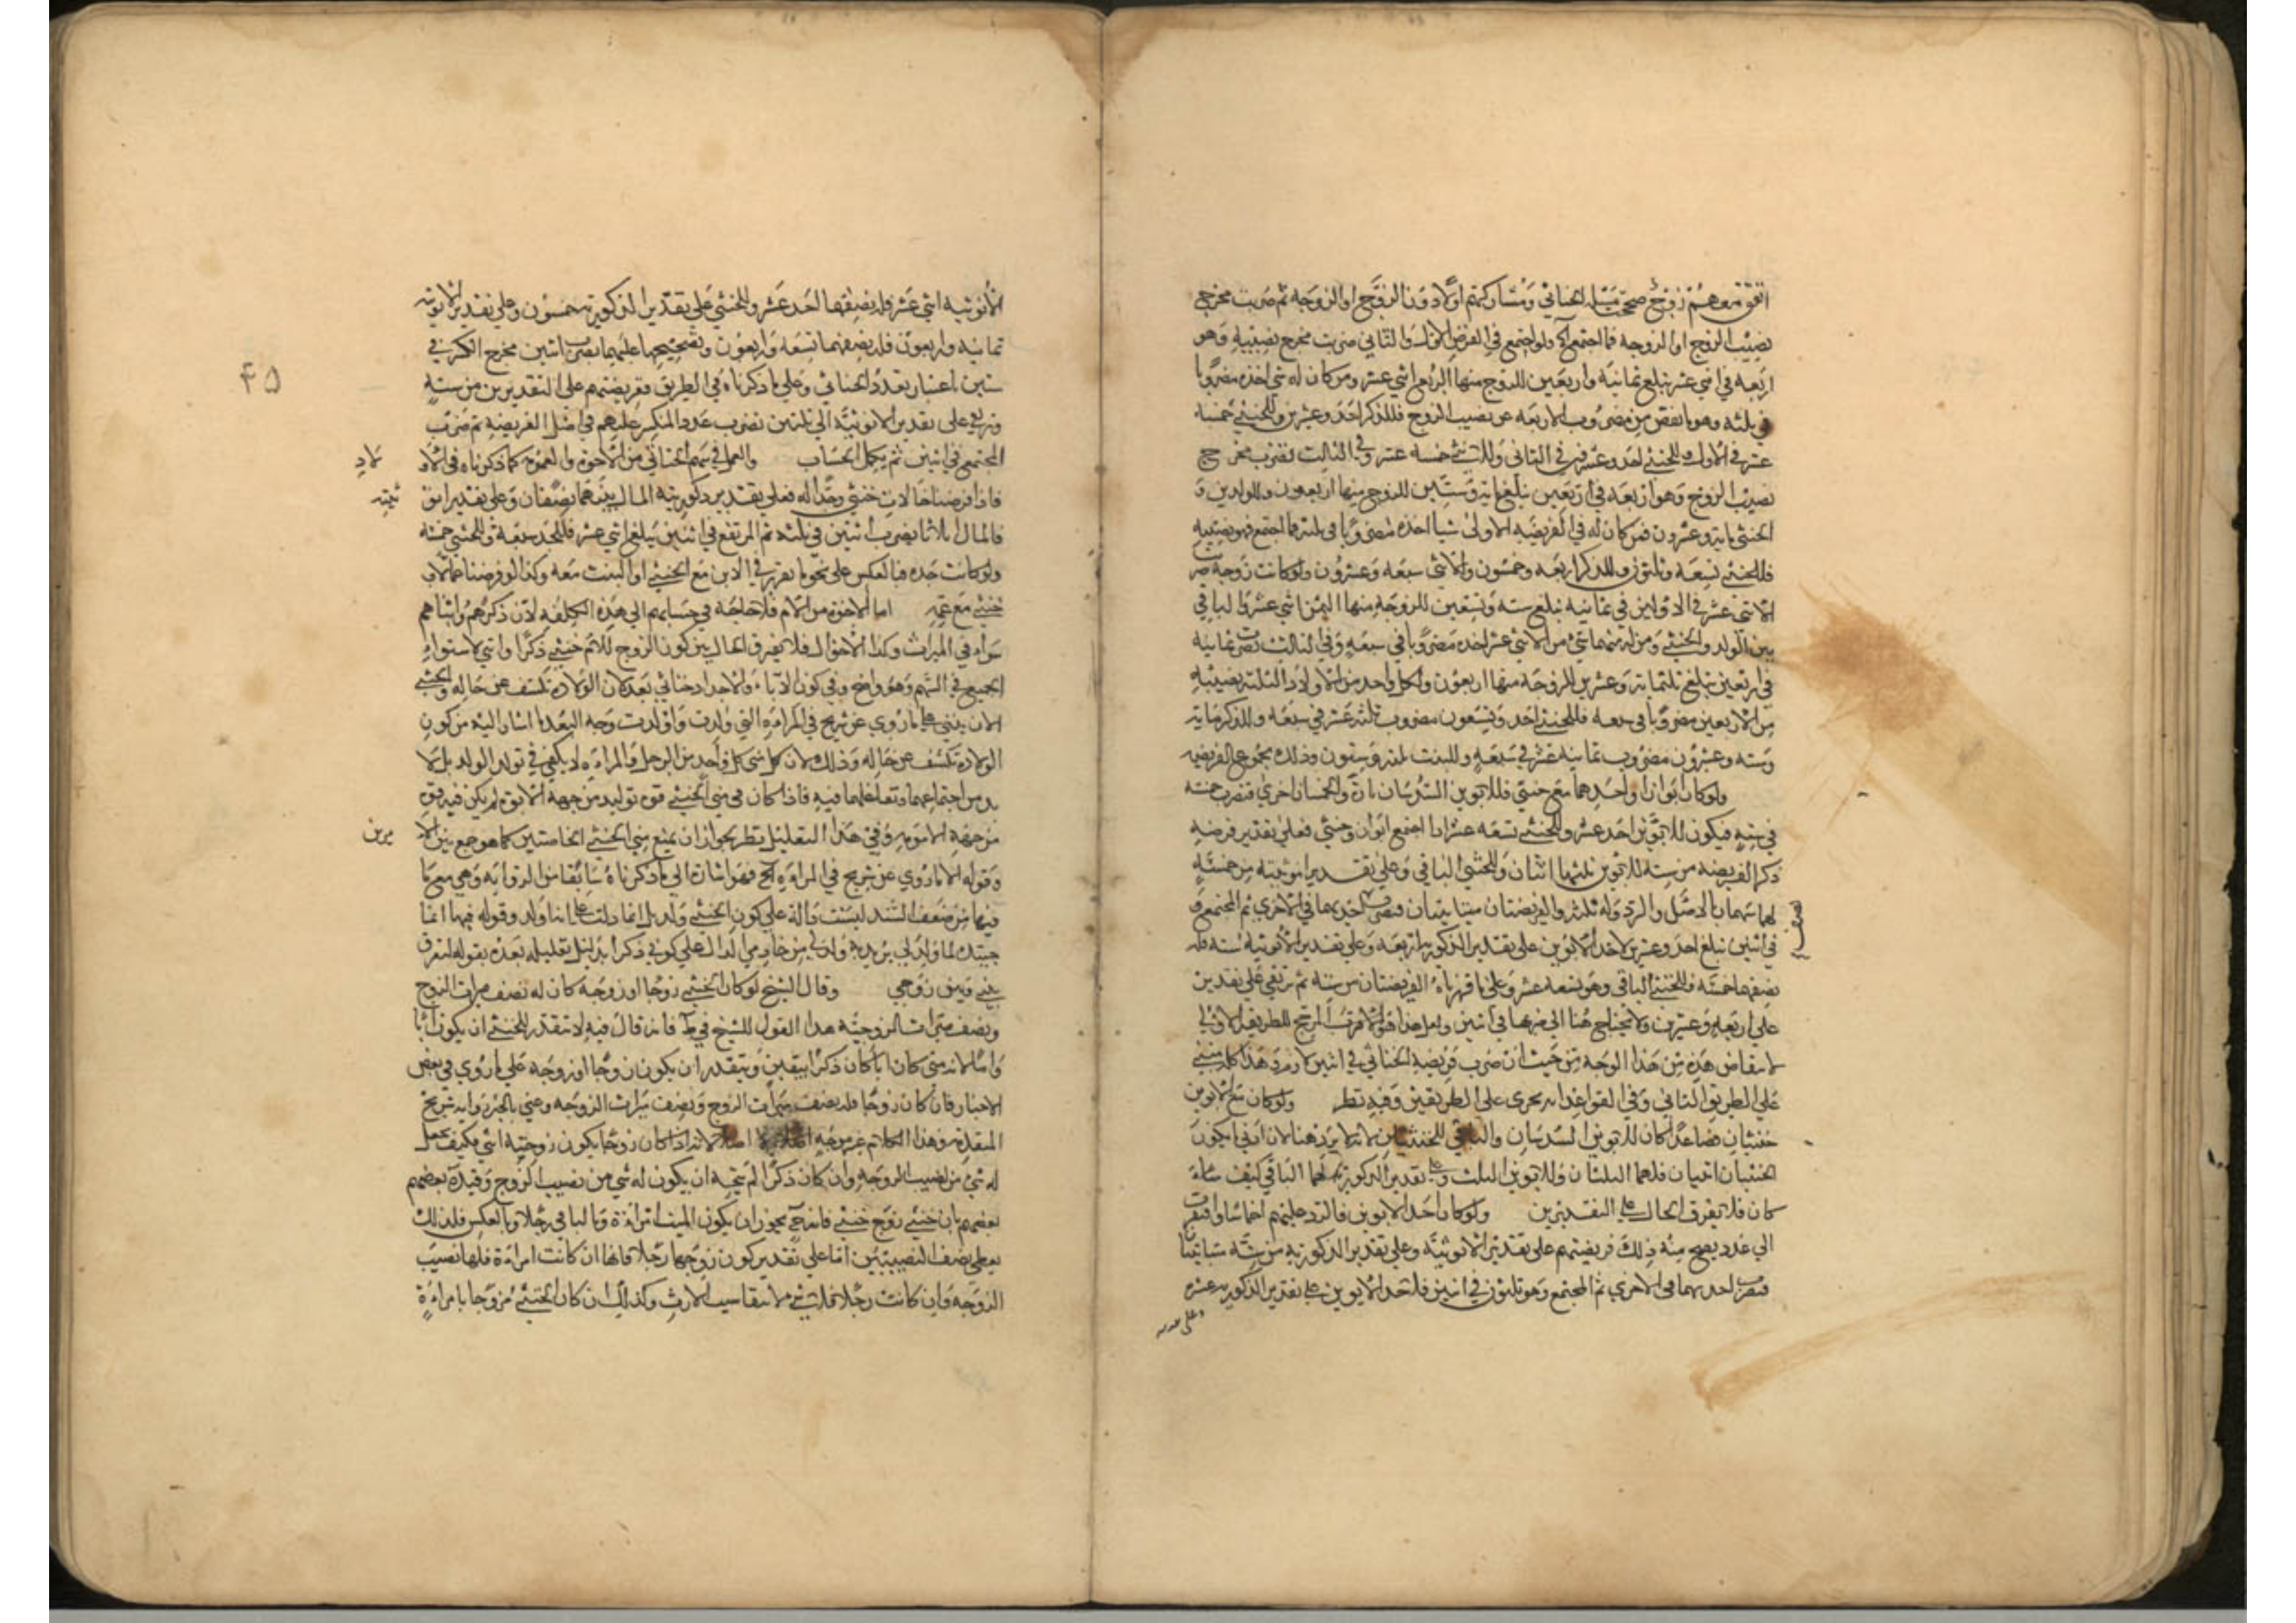 اتفق معهم زوج صححت مسئلة الخناثى ومشاركهم اولاً دون الزوج او الزوجة ثم ضربت مخرج
نصيب الزوج او الزوجة فما اجتمع الخ ولو اجتمع في الفرض الاول والثاني ضربت مخرج نصيبه وهو
اربعة في اثني عشر تبلغ ثمانية واربعين للزوج منها الربع اثني عشر ومن كان له شئ اخذه مضروبا
في ثلثه وهو ما نقص من مضروب الاربعة عن نصيب الزوج فللذكر احد وعشرين وللخنثى خمسة
عشر في الاول وللخنثى احد وعشرين في الثاني وللانثى خمسة عشر وفي الثالث تضرب مخرج
نصيب الزوج وهو اربعة في اربعين تبلغ مائة وستين للزوج منها اربعون وللولدين و
الخنثى مائة وعشرون فمن كان له في الفريضة الاولى شيئا اخذه مضروبا في ثلثه فما اجتمع فهو نصيبه
فللخنثى تسعة وثلثون وللذكر اربعة وخمسون وللانثى سبعة وعشرون ولو كانت زوجة ضربت
الاثني عشر في الاولين في ثمانية تبلغ ستة وتسعين للزوجة منها الثمن اثني عشر والباقي
بين الولد والخنثى ومن له منهما شئ من الاثني عشر اخذه مضروبا في سبعة وفي الثالث تضرب ثمانية
في اربعين تبلغ ثلثمائة وعشرين للزوجة منها اربعون ولكل واحد من الاولاد الثلثة نصيبه
من الاربعين مضروبا في سبعة فللخنثى احد وتسعون مضروب ثلثة عشر في سبعة وللذكر مائة
وستة وعشرون مضروب ثمانية عشر في سبعة وللبنت ثلثة وستون وذلك مجموع الفريضة
ولو كان ابوان او احدهما مع خنثى فللابوين السدسان تارة والخمسان اخرى فتضرب خمسة
في ستة فيكون للابوين احد عشر وللخنثى تسعة عشر اذا اجتمع ابوان وخنثى فعلى تقدير فرضه
ذكرا الفريضة من ستة للابوين ثلثها اثنان وللخنثى الباقي وعلى تقدير انوثيته من خمسة
لهما سهمان بالاصل والرد وله ثلثة والفريضتان متباينتان فتضرب احديهما في الاخرى ثم المجتمع
في اثنين تبلغ احد وعشرين لاحد الابوين على تقدير الذكورية اربعة وعلى تقدير الانوثية ستة فله
نصفهما خمسة وللخنثى الباقي وهو تسعة عشر وعلى ما قررناه الفريضتان من ستة ثم ترتقي على تقدير
على اربعة وعشرين ولا يحتاج هنا الى ضربها في اثنين ولعل هذا هو الاقرب المرجح للطريقة الاولى
لانتقاض هذه من هذا الوجه من حيث ان ضرب فريضة الخناثى في اثنين لازمة هذا كله مبني
على الطريق الثاني وفي القواعد انه يجرى على الطريقين وفيه نظر ولو كان مع الابوين
خنثيان فصاعدا كان للابوين السدسان والباقي للخنثيين لانه لا يرد هنا لان ادنى ما يكون
الخنثيان انثيان فلهما الثلثان وللابوين الثلث وعلى تقدير الذكورية لهما الباقي كيف شاء
كان فلا تفرق الحال على التقديرين ولو كان احد الابوين فالرد عليهم اخماسا وافتقرت
الى عدد يصح منه ذلك فريضتهم على تقدير الانوثية وعلى تقدير الذكورية من ستة متباينتا
فتضرب احديهما في الاخرى ثم المجتمع وهو ثلثون في اثنين فلاحد الابوين على تقدير الذكورية عشرة
وعلى تقدير
۴۵
الانوثية اثني عشر فله نصفهما احد عشر وللخنثى على تقدير الذكورية خمسون وعلى تقدير الانوثية
ثمانية واربعون فله نصفهما تسعة واربعون وتصحيحها عليهما بضرب اثنين مخرج الكسر في
ستين اعتبار تعدد الخناثى وعلى ما ذكرناه في الطريق ففريضتهم على التقديرين من ستة
وترتقي على تقدير الانوثية الى ثلثين تضرب عدد المنكسر عليهم في اصل الفريضة ثم تضرب
المجتمع في اثنين ثم يكمل الحساب والعمل في سهم الخناثى من الاخوة والعمومة كما ذكرناه في الاولاد
فاذا فرضنا خالات خنثى وجدا له فعلى تقدير ذكوريته المال بينهما نصفان وعلى تقدير انوثيته
فالمال اثلاثا بضرب اثنين في ثلثة ثم المرتفع في اثنين يبلغ اثني عشر فللجد سبعة وللخنثى خمسة
ولو كانت جدة فبالعكس على نحو ما تقرر في الابن مع الخنثى او البنت معه وكذا لو فرضنا عما لاب
خنثى مع عمة اما الاخوة من الام فلا حاجة في حسابهم الى هذه الكلفة لان ذكرهم وانثاهم
سواء في الميراث وكذا الاخوال فلا تفرق الحال بين كون الزوج للام خنثى ذكرا وانثى لاستواء
الجميع في السهم وهو واضح وفي كون الاباء والاجداد خناثى بعد لان الولادة تكشف عن حاله والخنثى
الا ان ينبني على ما روي عن شريح في المراءة التي ولدت واولدت وجه البعد ما اشار اليه من كون
الولادة تكشف عن حاله وذلك لان كل شئ كل واحد من الرجل والمراءة لا يكفي في تولد الولد بل لا
بد من اجتماعهما وتفاعلهما فيه فاذا كان في مني الخنثى قوة توليد من جهة الابوة لم يكن فيه قوة
من جهة الامومة وفي هذا التعليل نظر لجواز ان يمنع مني الخنثى الخاصتين كما هو جمع بين الامرين
وقوله الا ما روي عن شريح في المراءة الخ فهو اشارة الى ما ذكرناه سابقا من الرواية وهي مع ما
فيها من ضعف السند ليست دالة على كون الخنثى ولد بل انما دلت على انها ولد وقوله فيها انما
جئتك لما ولد لي من يدي وولد لي من خادمي الدال على كونه ذكرا بدليل تعليله بعده بقوله لتفرق
بيني وبين زوجي وقال الشيخ لو كان الخنثى زوجا او زوجة كان له نصف ميراث الزوج
ونصف ميراث الزوجة هذا القول للشيخ في ط فانه قال فيه لا تتقدر للخنثى ان يكون ابا
واما لانه متى كان ابا كان ذكرا بيقين ويتقدر ان يكون زوجا او زوجة على ما روي في بعض
الاخبار فان كان زوجا فله نصف ميراث الزوج ونصف ميراث الزوجة وعني بالخبر رواية شريح
المتقدمة وهذا الكلام غير موجه اصلا لانه اذا كان زوجا يكون زوجته انثى فكيف يجعل
له شئ من نصيب الزوجة وان كان ذكرا لم يتجه ان يكون له شئ من نصيب الزوج وقيده بعضهم
بعضهم بان خنثى تزوج خنثى فانه ح يجوز ان يكون الميت امراءة والباقي رجلا وبالعكس فلذلك
يعطى نصف النصيبين اما على تقدير كون زوجها رجلا فانها ان كانت امراءة فلها نصيب
الزوجة وان كانت رجلا فلا شئ لانتفاء سبب الارث وكذلك ان كان الخنثى مزوجا بامراءة